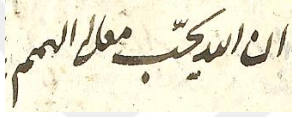 ان الله يحبّ معالى الهمم